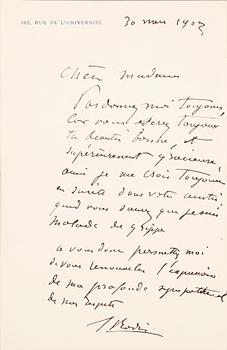 182, RUE DE L'UNIVERSITÉ
30 mars 1903
Chère madame
Pardonnez moi toujours,
car vous êtes toujours
la beauté bonne, et
supérieurement gracieuse
aussi je me crois toujours
en sureté dans votre amitié
quand vous saurez que je suis
malade de grippe
a vous donc permettez moi
de vous renouveler l'expression
de ma profonde sympathie et
de mes respects
A Rodin